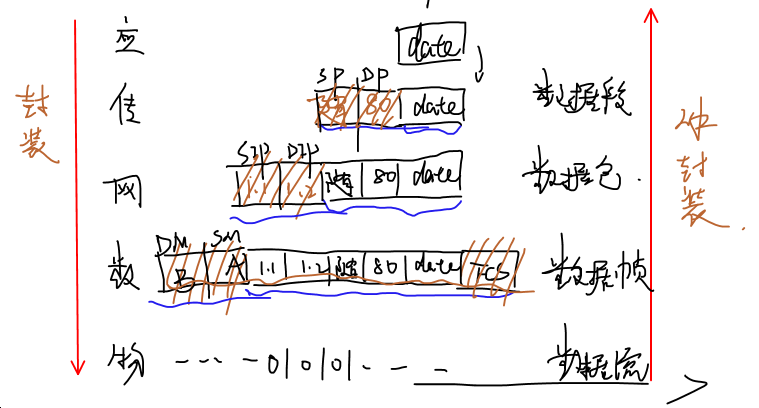 应 date
SP DP
传 随 80 date 数据段
SIP DIP
网 1.1 1.2 随 80 date 数据包.
DM SM
数 B A 1.1 1.2 随 80 date FCS 数据帧
物 --- -010101-- - 数据流
封装
解封装.